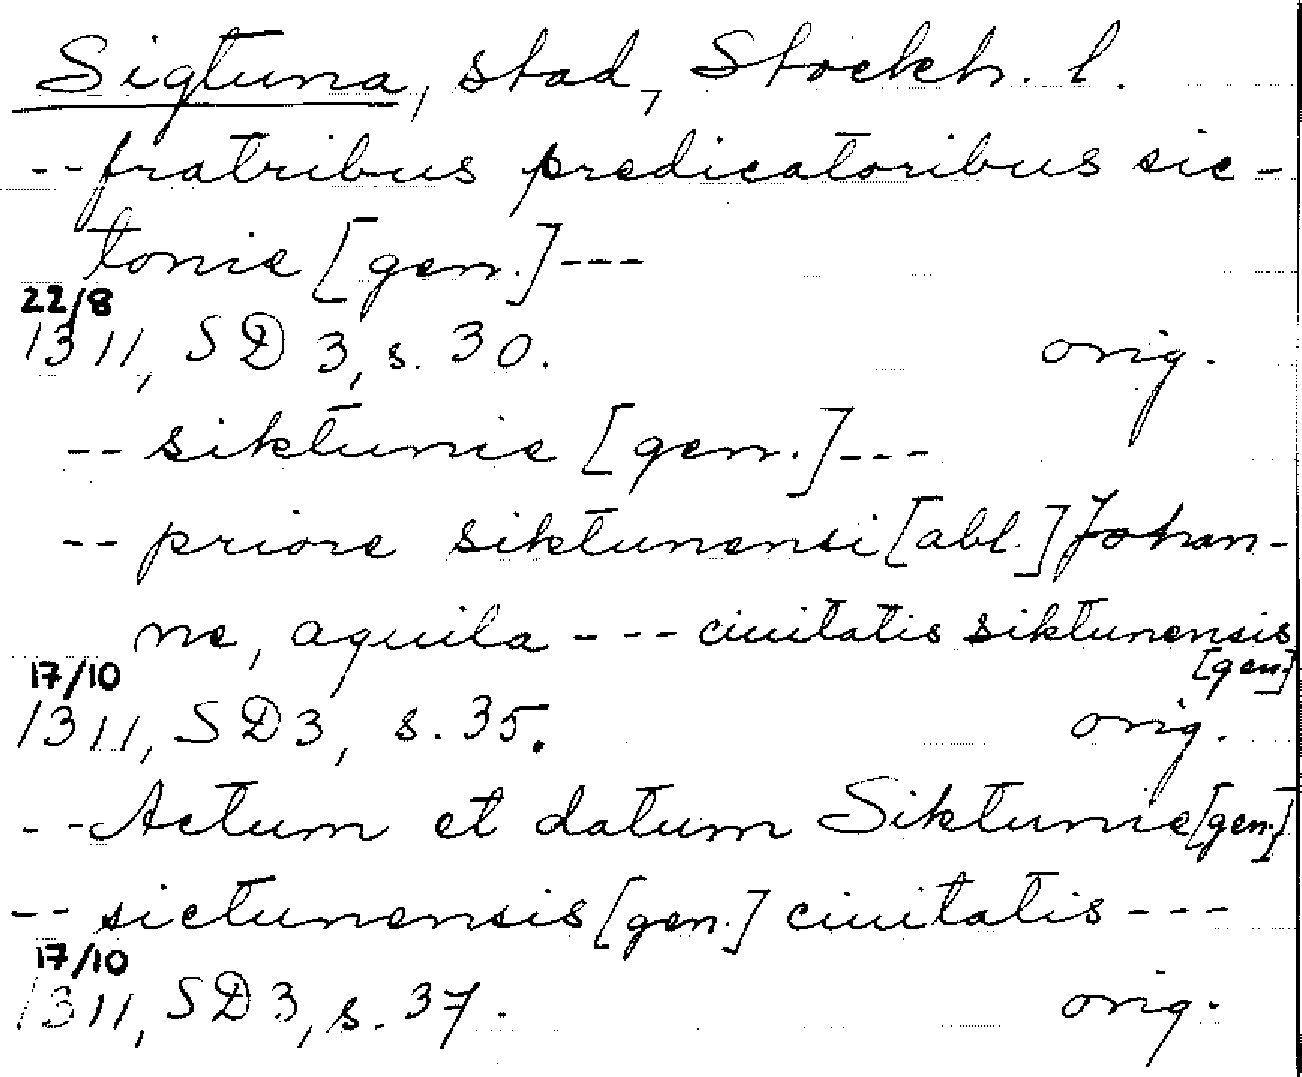 Sigtuna, stad, Stockh. l.
-- fratribus predicatoribus sic-
tonie [gen.] ---
22/8
1311, SD 3, s. 30. orig.
-- siktunie [gen.] ---
-- priore siktunensi [abl.] Johan-
ne, aquila --- ciuitatis siktunensis
[gen.]
17/10
1311, SD 3, s. 35. orig.
-- Actum et datum Siktunie [gen.]
-- sictunensis [gen.] ciuitatis ---
17/10
1311, SD 3, s. 37. orig.